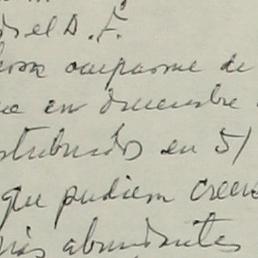 el D. F.
ocuparme de
en diciembre
distribuidos en 51
que pudiera crecer
más abundantes